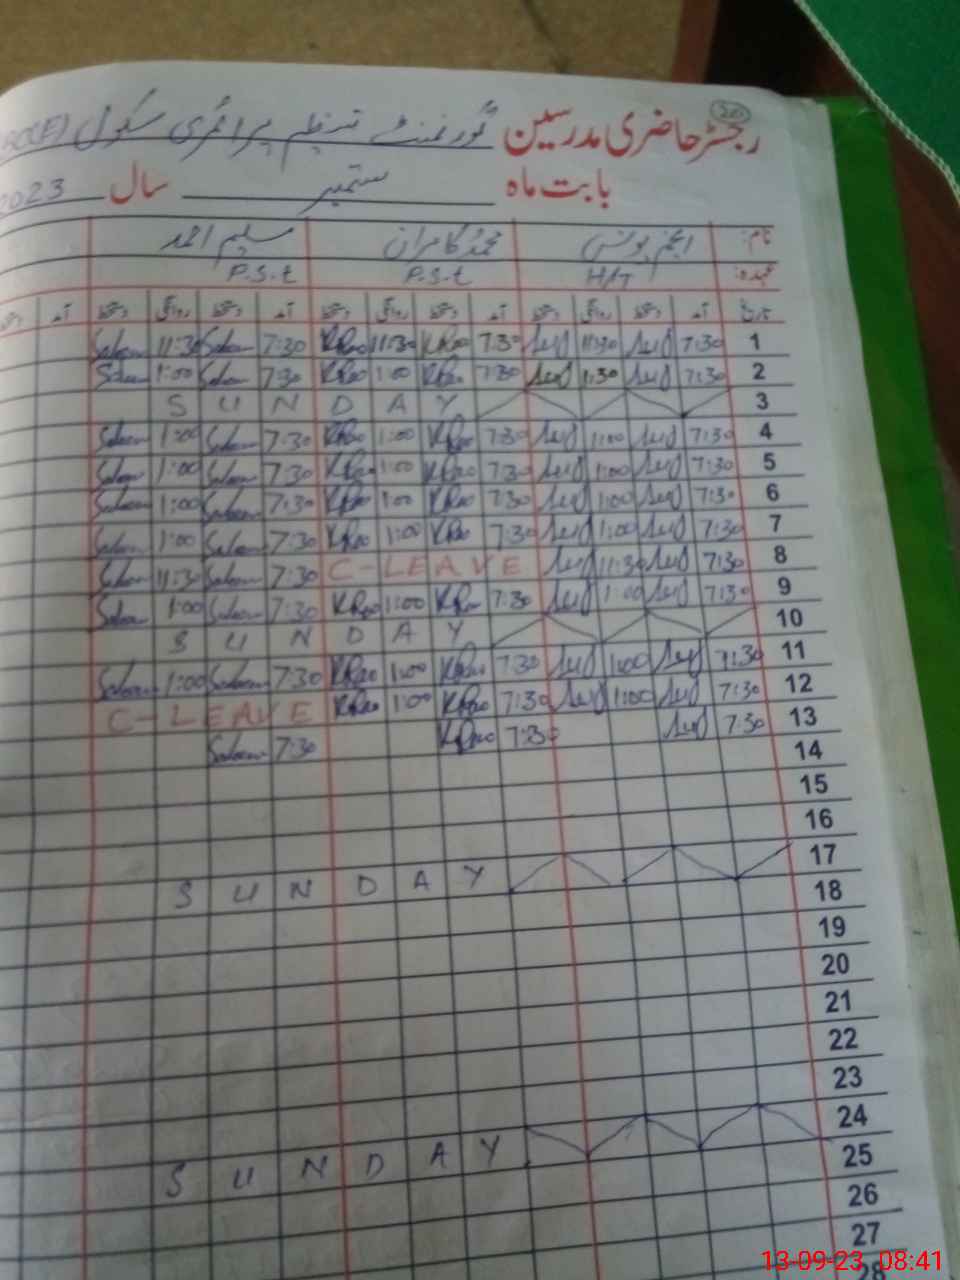 20
رجسٹر حاضری مدرسین گورنمنٹ تنظیم پرائمری سکول
بابت ماہ ستمبر سال 2023
نام: انجم یونس محمد کامران سلیم احمد
عہدہ: H/T P.S.t P.S.t
تاریخ آمد دستخط روانگی دستخط آمد دستخط روانگی دستخط آمد دستخط روانگی دستخط آمد
1 7:30 11:30 7:30 KRao 11:30 KRao 7:30 Saleem 11:30 Saleem
2 7:30 1:30 7:30 KRao 1:00 KRao 7:30 Saleem 1:00 Saleem
3 SUNDAY
4 7:30 1:00 7:30 KRao 1:00 KRao 7:30 Saleem 1:00 Saleem
5 7:30 1:00 7:30 KRao 1:00 KRao 7:30 Saleem 1:00 Saleem
6 7:30 1:00 7:30 KRao 1:00 KRao 7:30 Saleem 1:00 Saleem
7 7:30 1:00 7:30 KRao 1:00 KRao 7:30 Saleem 1:00 Saleem
8 7:30 11:30 C-LEAVE 7:30 Saleem 11:30 Saleem
9 7:30 1:00 7:30 KRao 1:00 KRao 7:30 Saleem 1:00 Saleem
10 SUNDAY
11 7:30 1:00 7:30 KRao 1:00 KRao 7:30 Saleem 1:00 Saleem
12 7:30 1:00 7:30 KRao 1:00 KRao C-LEAVE
13 7:30 7:30 KRao 7:30 Saleem
14
15
16
17 SUNDAY
18
19
20
21
22
23
24 SUNDAY
25
26
27
28
13-09-23 08:41